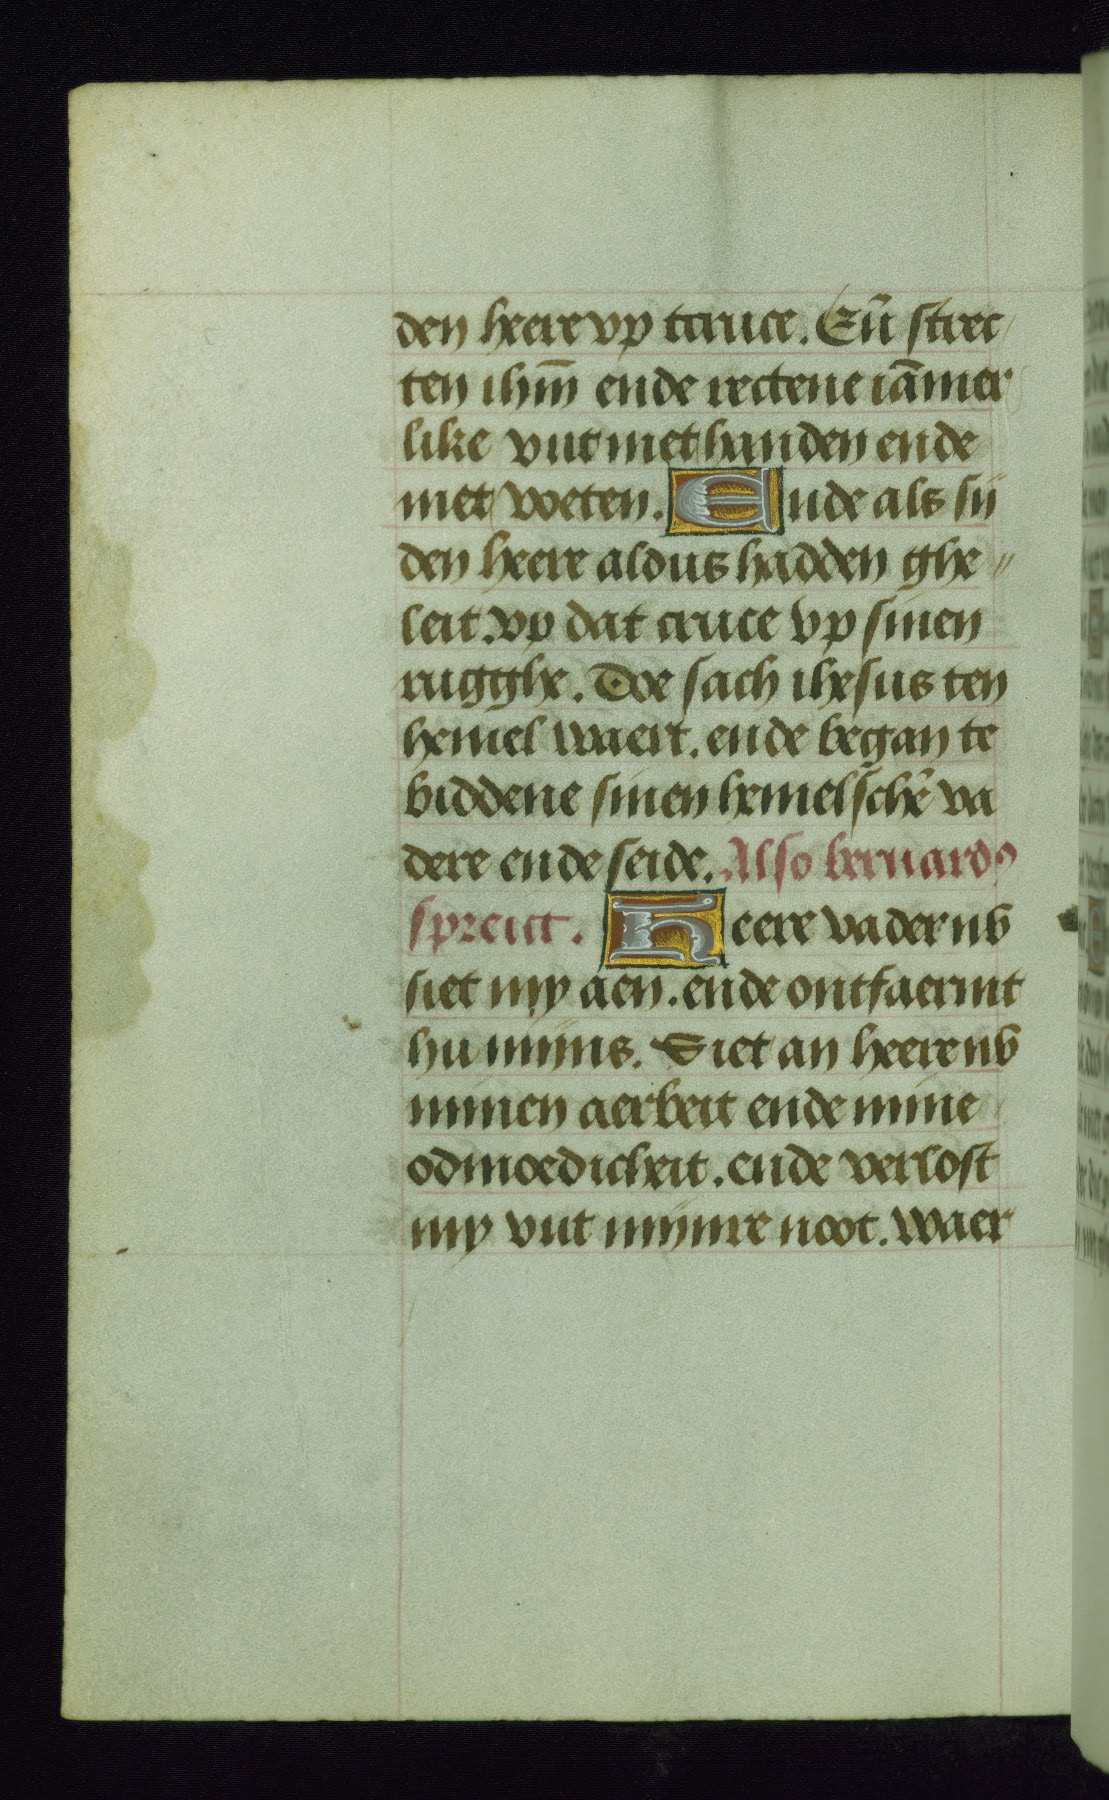 den heere vp tcruce. Eñ strec
ten ihm̄ ende rectene iāmer
like vut met handen ende
met voeten. Ende als sij
den heere aldus hadden ghe〃
leit. vp dat cruce vp sinen
rugghe. Doe sach ihesus ten
hemel waert. ende began te
biddene sinen hemelschē va
dere ende seide. Also bernardꝰ
spreict. Heere vader nv
siet my aen. ende ontfaermt
hu mijns. Siet an heere nv
minen aerbeit ende mine
odmoedicheit. ende verlost
my vut mijnre noot. waer